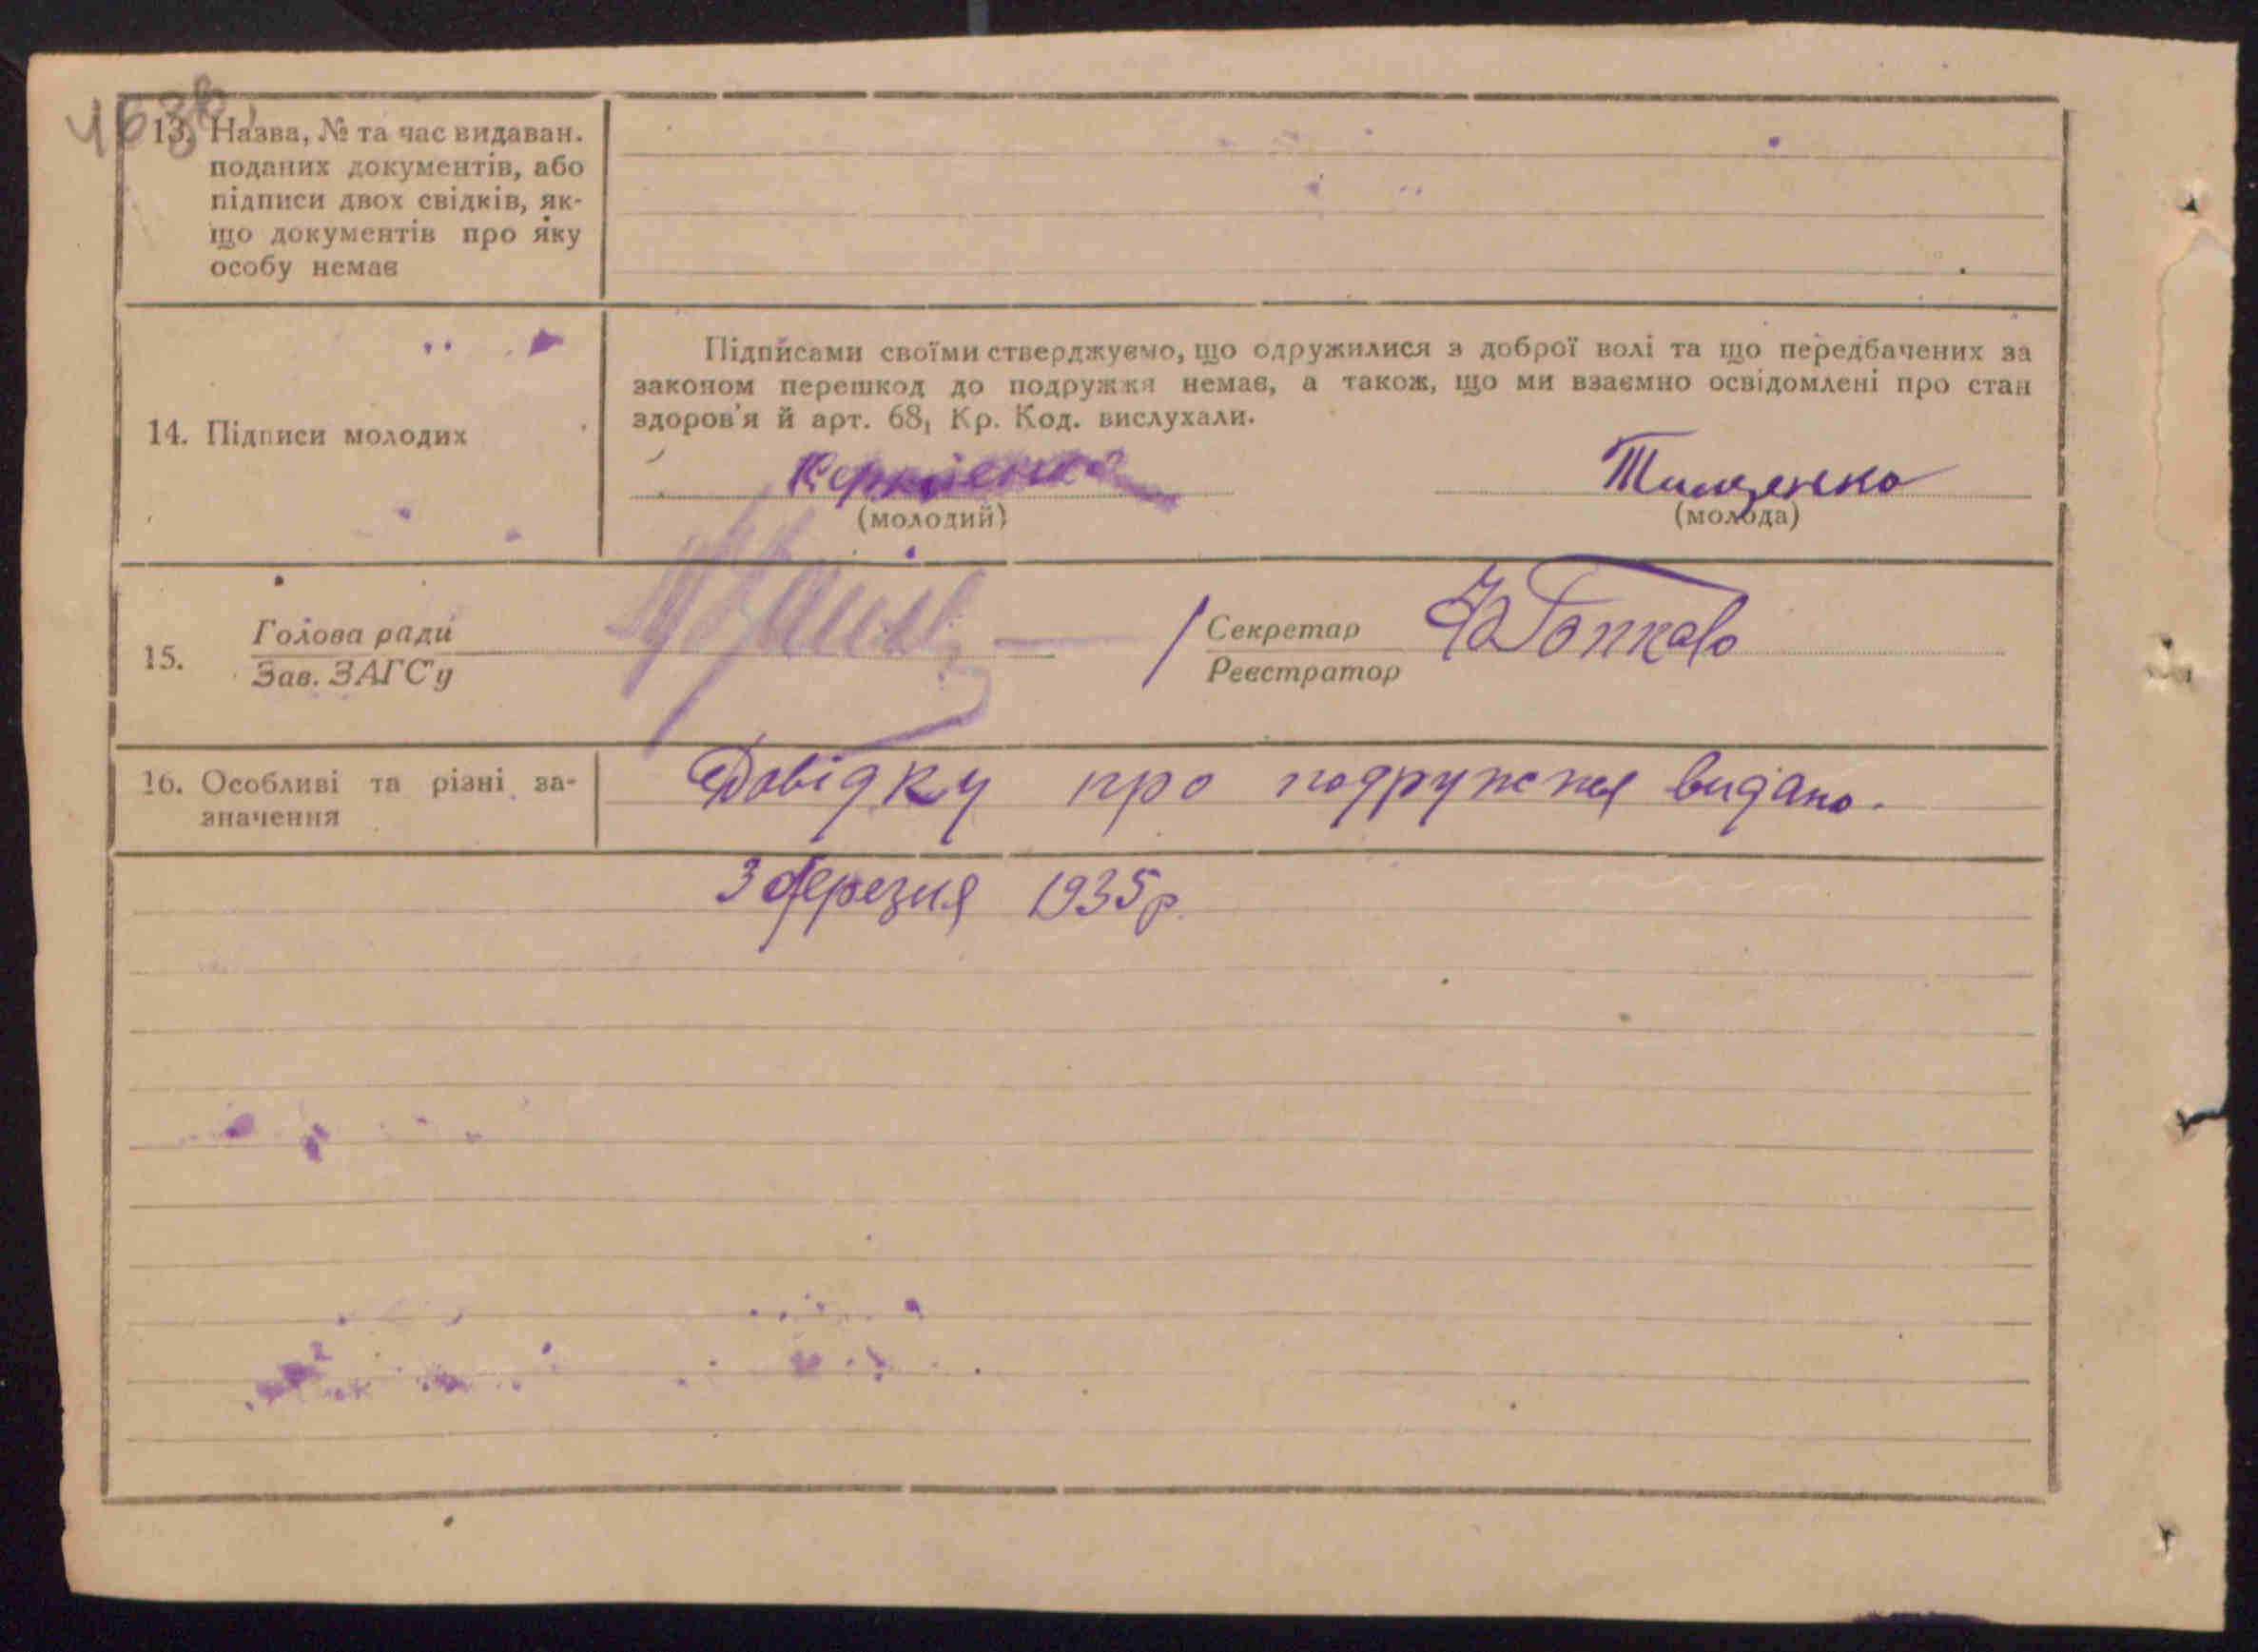 13. Назва, № та час видаван.
поданих документів, або
підписи двох свідків, як-
що документів про яку
особу немає
14. Підписи молодих
Підписами своїми стверджуємо, що одружилися з доброї волі та що передбачених за
законом перешкод до подружжя немає, а також, що ми взаємно освідомлені про стан
здоров'я й арт. 68, Кр. Код. вислухали.
Тищенко
(молодий)
(молода)
15.
Голова ради
Зав. ЗАГС'у
Секретар
Реєстратор
16. Особливі та різні за-
значення
Довідку про подружжя видано.
3 березня 1935 р.